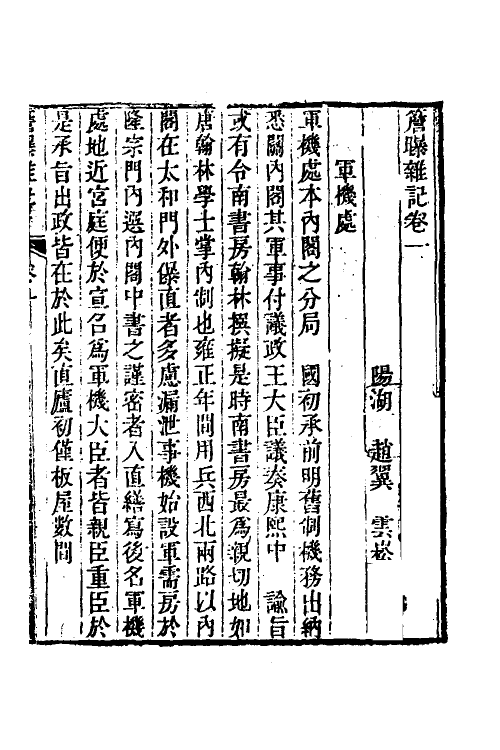 簷曝雜記卷一
陽湖 趙翼 雲崧
軍機處
軍機處本內閣之分局 國初承前明舊制機務出納
悉關內閣其軍事付議政王大臣議奏康熙中 諭旨
或有令南書房翰林撰擬是時南書房最爲親切地如
唐翰林學士掌內制也雍正年間用兵西北兩路以內
閣在太和門外儤直者多慮漏泄事機始設軍需房於
隆宗門內選內閣中書之謹密者入直繕寫後名軍機
處地近宮庭便於宣召爲軍機大臣者皆親臣重臣於
是承旨出政皆在於此矣直廬初僅板屋數間